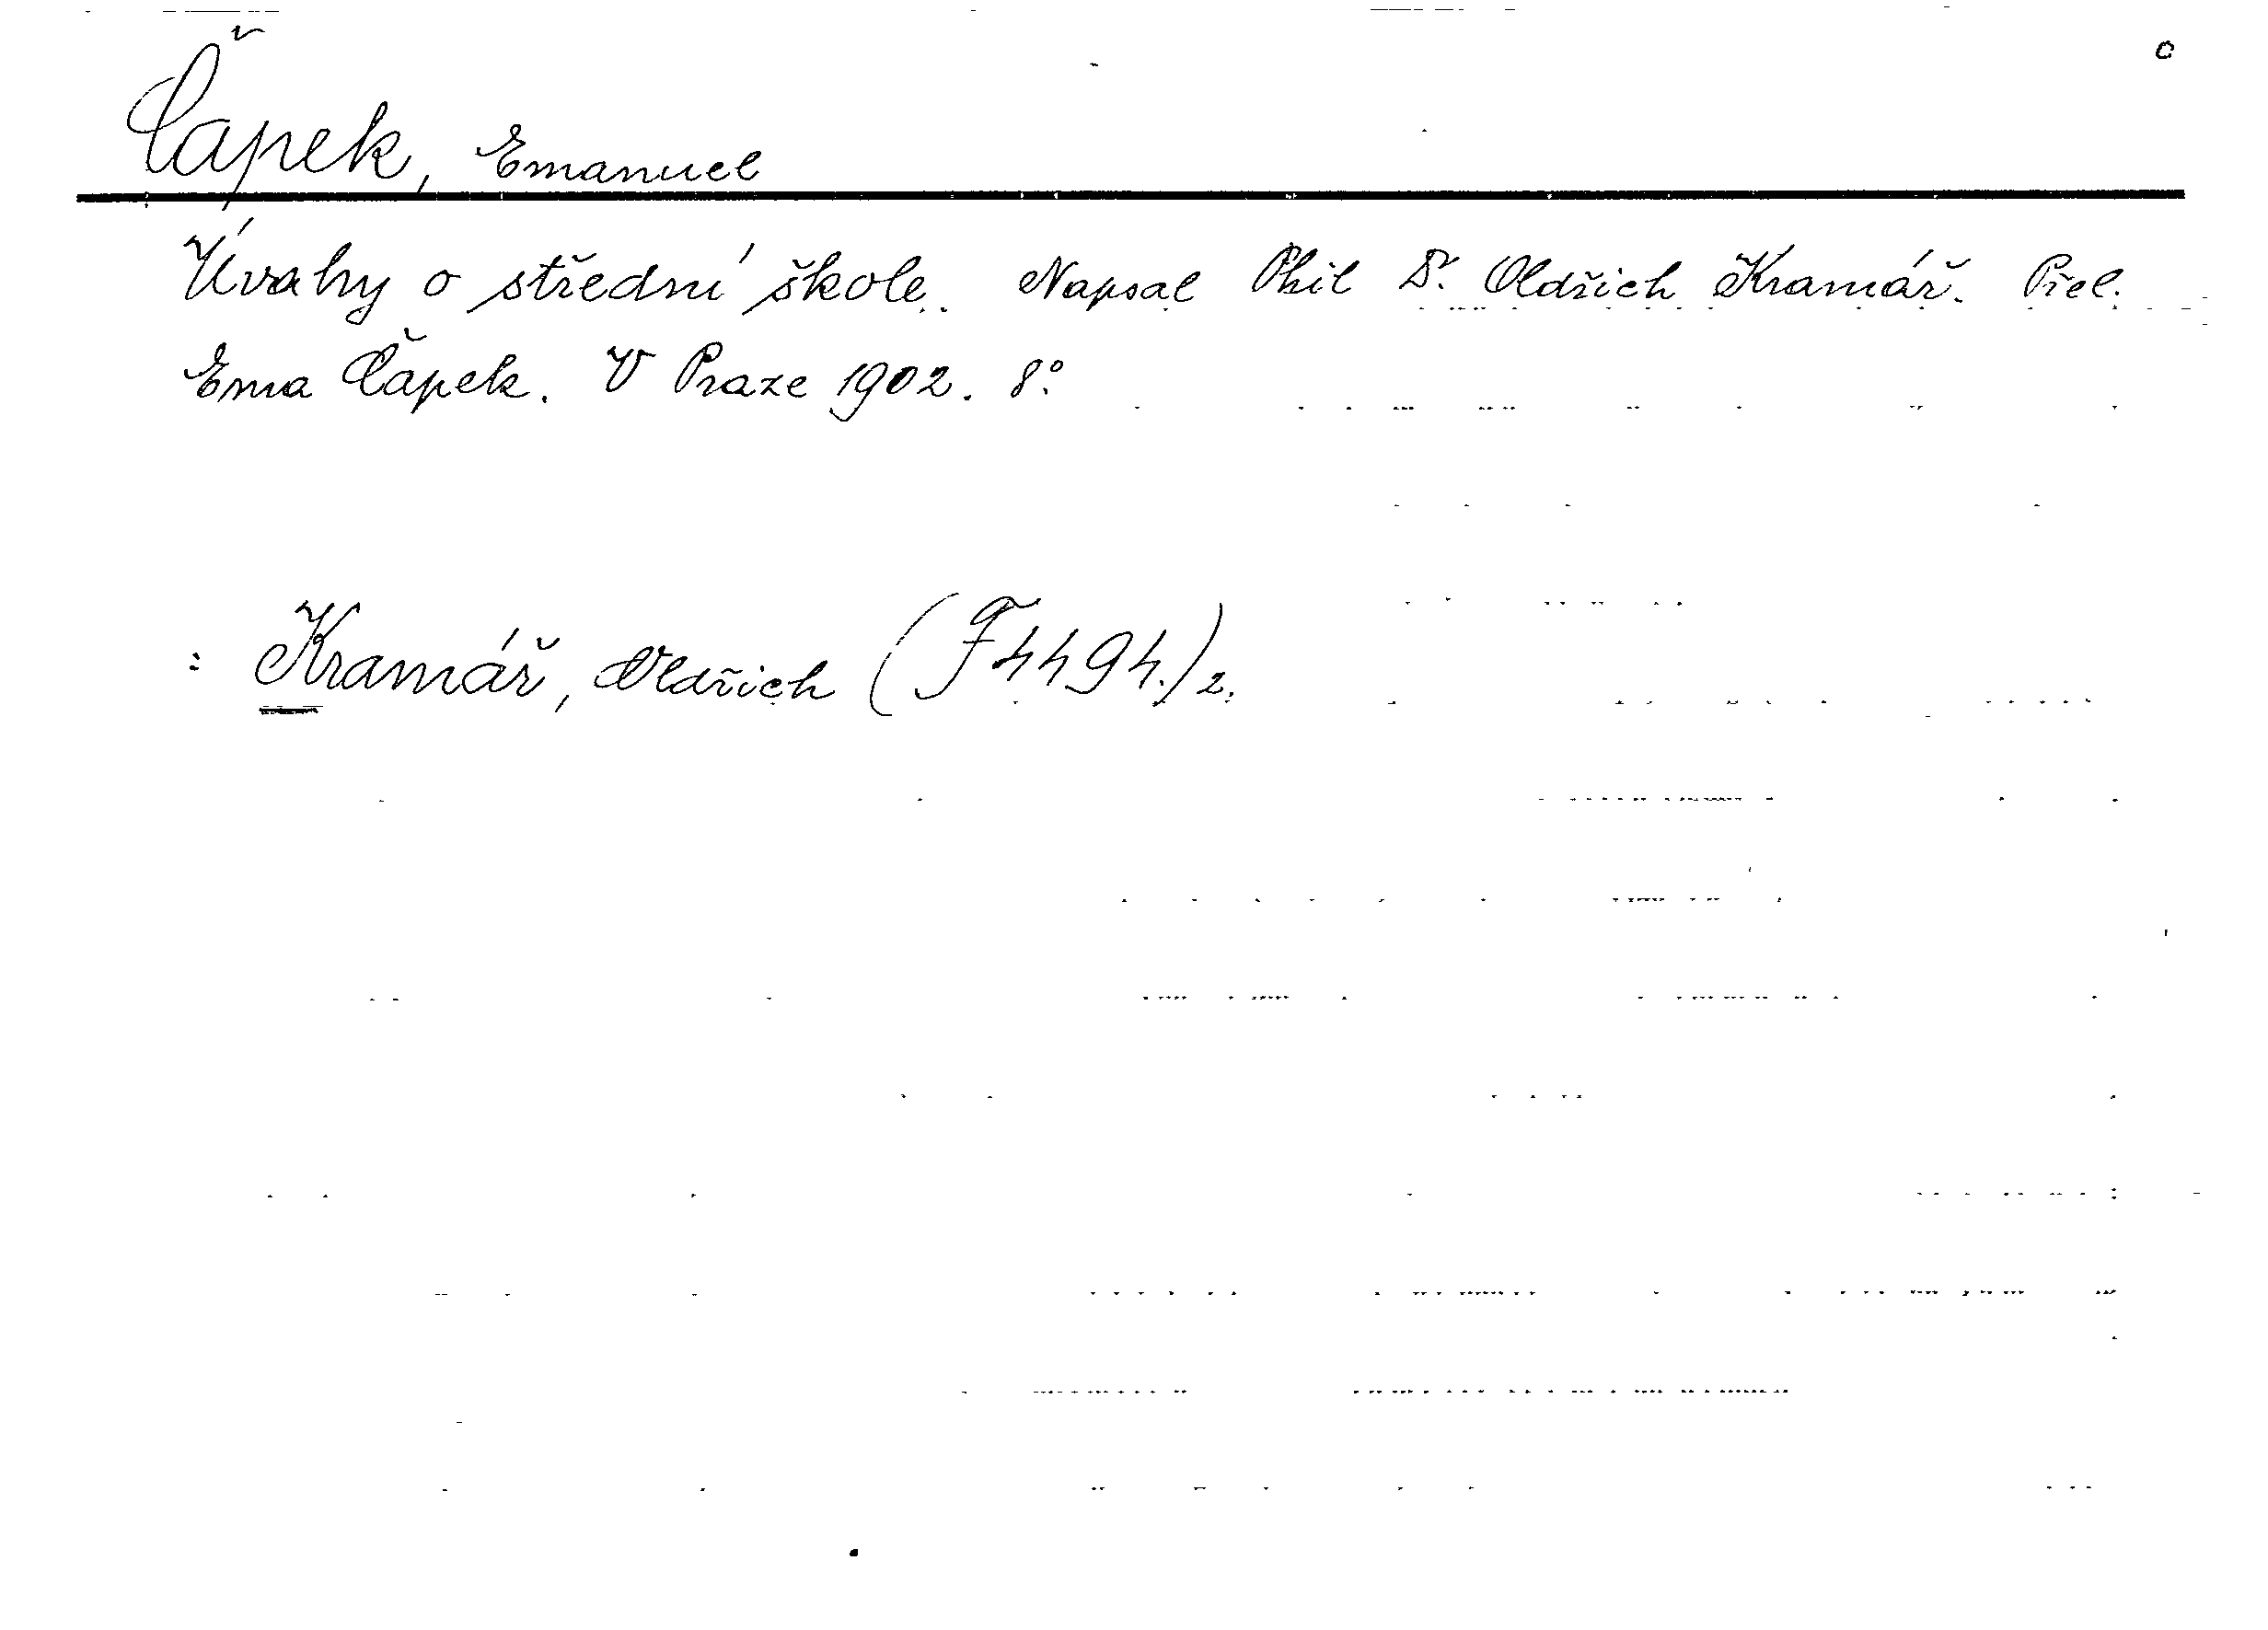 Čapek, Emanuel
Úvahy o střední škole. Napsal Phil Dr. Oldřich Kramář. Přel.
Ema Čapek. V Praze 1902. 8°.
: Kramář, Oldřich (F 4494.) 2.